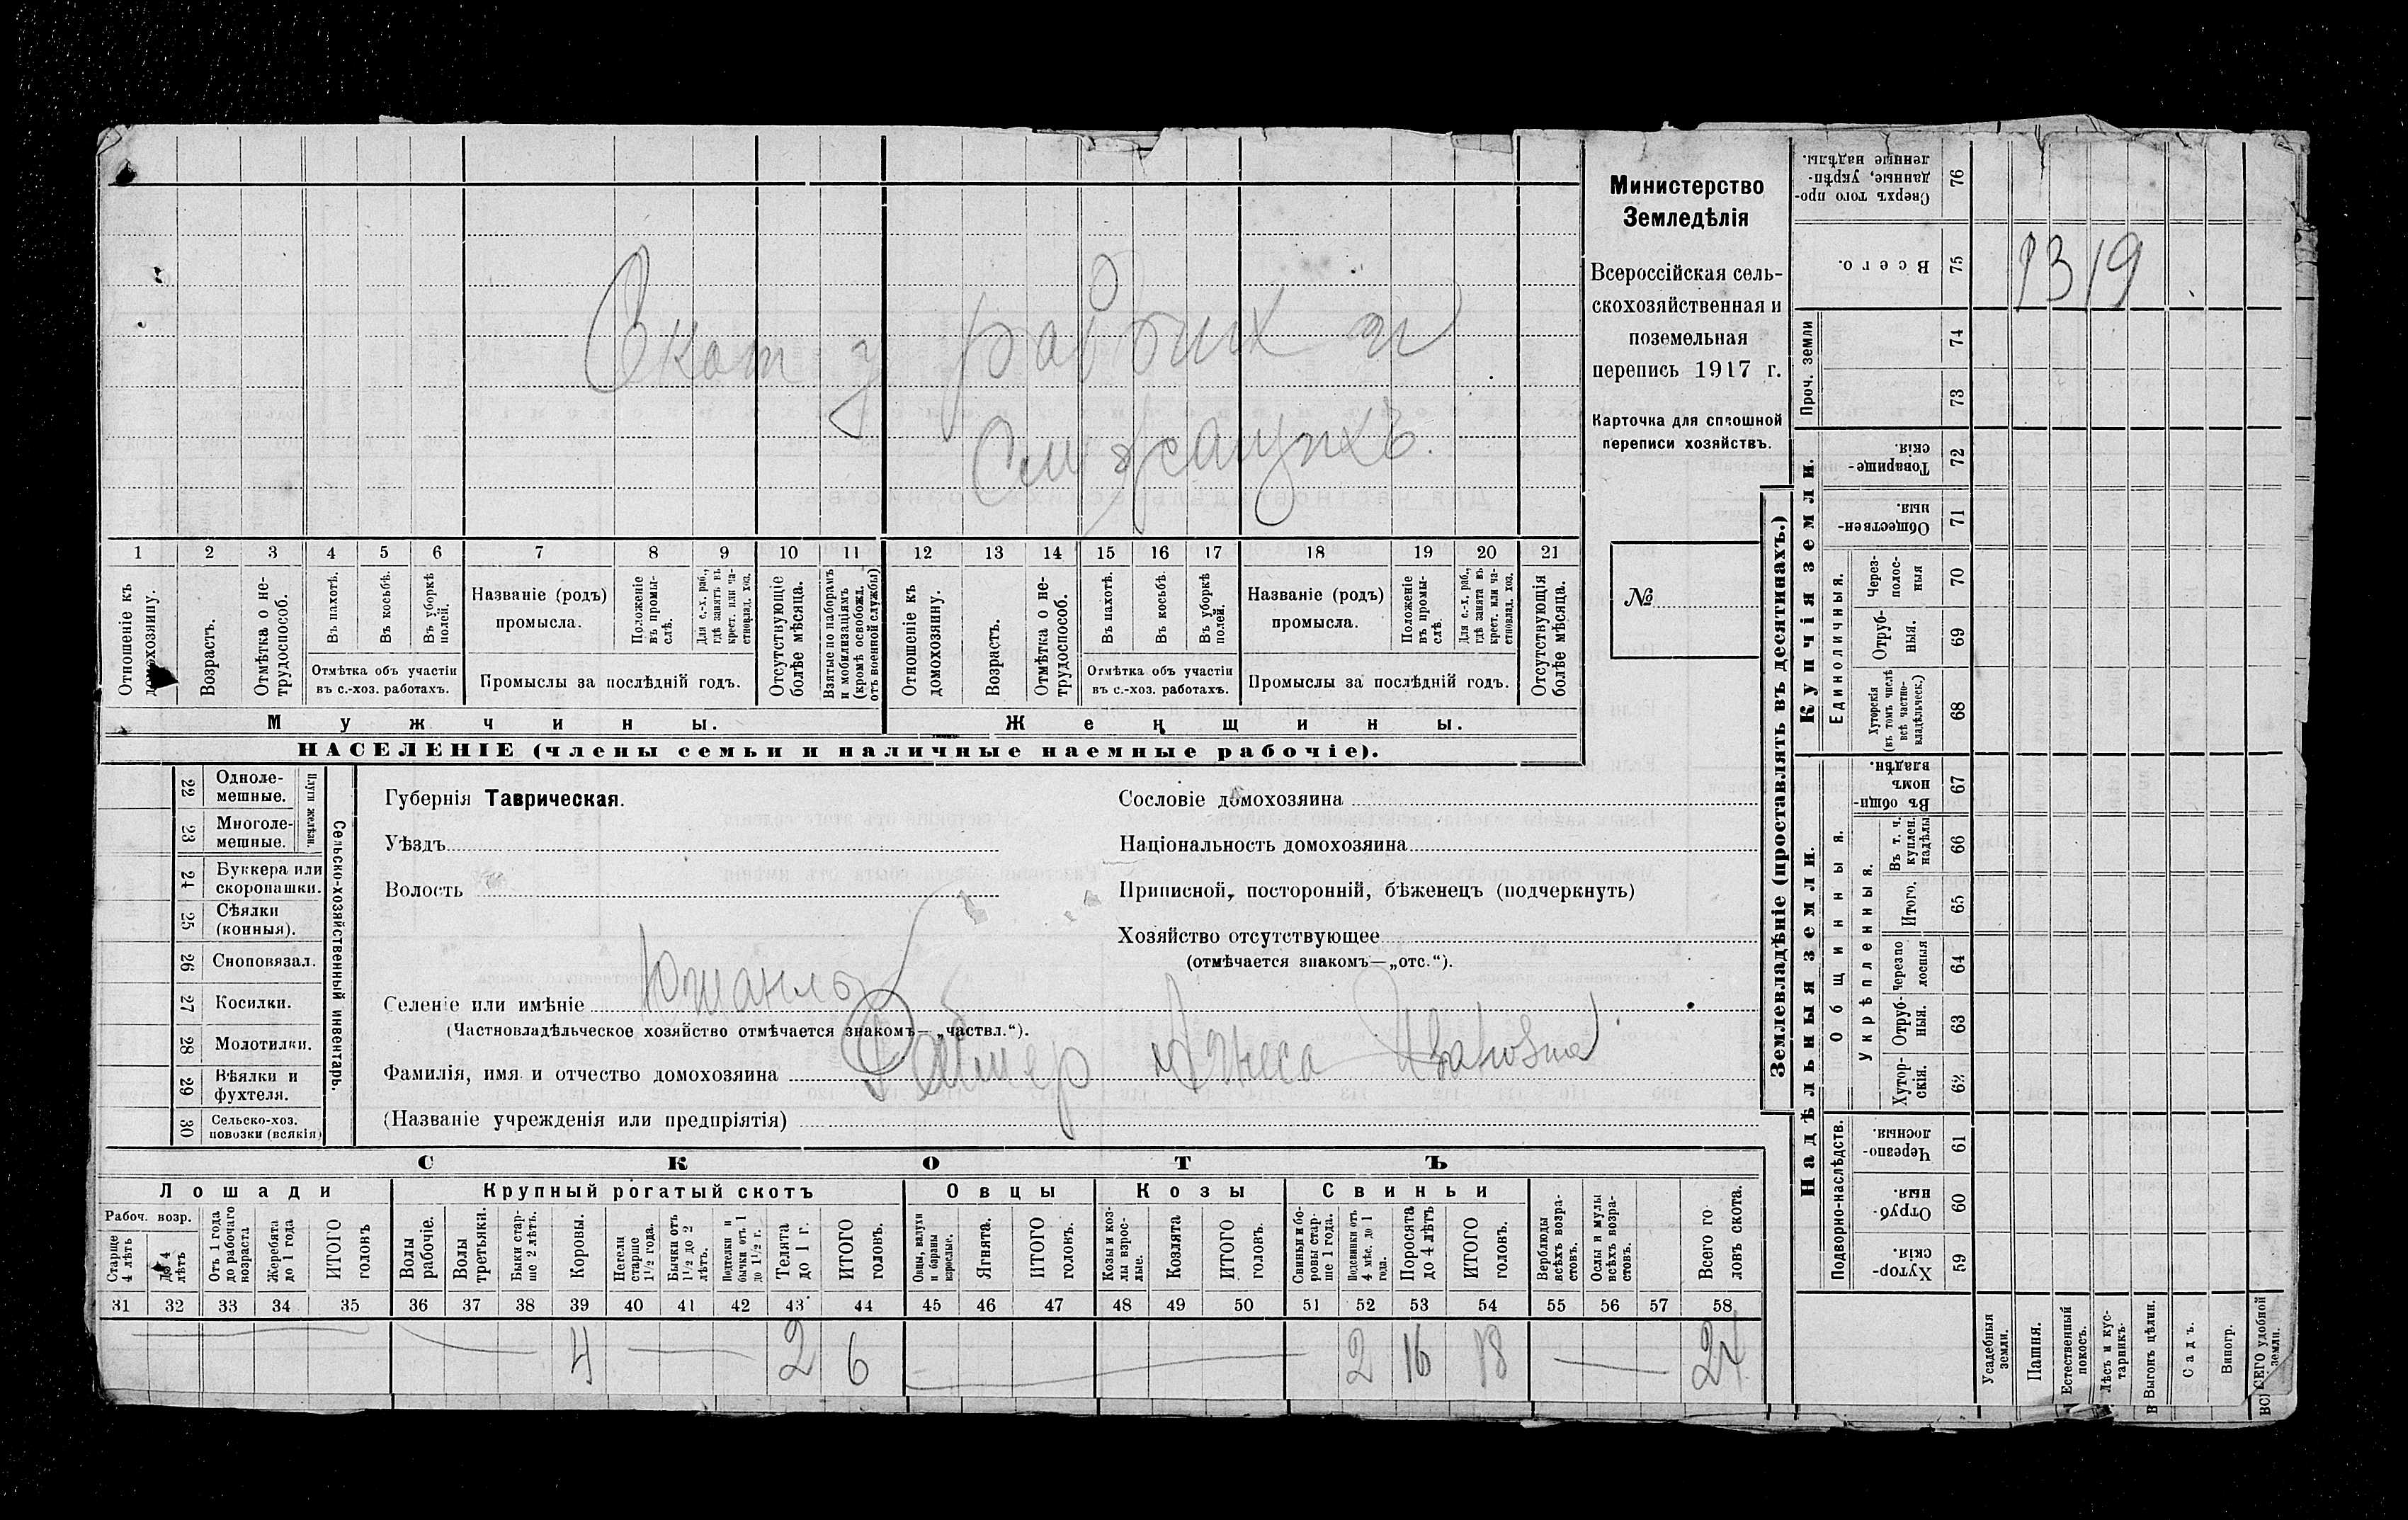 Министерство
Земледѣлія
Всероссійская сель-
скохозяйственная и
поземельная
перепись 1917 г.
Карточка для сплошной
переписи хозяйствъ.
№
Скот у рабочих и
Служащихъ.
1 2 3 4 5 6 7 8 9 10 11 12 13 14 15 16 17 18 19 20 21
Отношеніе къ домохозяину.
Возрастъ.
Отмѣтка о не-трудоспособ.
Въ пахотѣ.
Въ косьбѣ.
Въ уборкѣ полей.
Отмѣтка объ участіи
въ с.-хоз. работахъ.
Названіе (родъ)
промысла.
Положеніе въ промы-слѣ.
Для с.-х. раб., гдѣ занятъ въ крест. или ча-стновлад. хоз.
Промыслы за послѣдній годъ.
Отсутствующіе болѣе мѣсяца.
Взятые по наборамъ и мобилизаціямъ (кромѣ освобожд. отъ военной службы)
Отношеніе къ домохозяину.
Возрастъ.
Отмѣтка о не-трудоспособ.
Въ пахотѣ.
Въ косьбѣ.
Въ уборкѣ полей.
Отмѣтка объ участіи
въ с.-хоз. работахъ.
Названіе (родъ)
промысла.
Положеніе въ промы-слѣ.
Для с.-х. раб., гдѣ занята въ крест. или ча-стновлад. хоз.
Промыслы за послѣдній годъ.
Отсутствующія болѣе мѣсяца.
Мужчины.
Женщины.
НАСЕЛЕНІЕ (члены семьи и наличные наемные рабочіе).
22 Одноле-мешные.
23 Многоле-мешные.
Плуги желѣзн.
24 Буккера или скоропашки.
25 Сѣялки (конныя).
26 Сноповязал.
27 Косилки.
28 Молотилки.
29 Вѣялки и фухтеля.
30 Сельско-хоз. повозки (всякія)
Сельско-хозяйственный инвентарь.
Губернія Таврическая.
Уѣздъ
Волость
Селеніе или имѣніе Юшанлы
(Частновладѣльческое хозяйство отмѣчается знакомъ—„частвл.“).
Фамилія, имя и отчество домохозяина Реймер Агнеса Ивановна
(Названіе учрежденія или предпріятія)
Сословіе домохозяина
Національность домохозяина
Приписной, посторонній, бѣженецъ (подчеркнуть)
Хозяйство отсутствующее
(отмѣчается знакомъ—„отс.“).
СКОТЪ
Лошади
Крупный рогатый скотъ
Овцы
Козы
Свиньи
Рабоч. возр.
Старше 4 лѣтъ
До 4 лѣтъ
Отъ 1 года до рабочаго возраста
Жеребята до 1 года
ИТОГО головъ
Волы рабочіе.
Волы третьяки.
Быки стар-ше 2 лѣтъ.
Коровы.
Нетели старше 1 1/2 года.
Бычки отъ 1 1/2 до 2 лѣтъ.
Подтелки и бычки отъ 1 до 1 1/2 г.
Телята до 1 г.
ИТОГО головъ.
Овцы, валухи и бараны взрослые.
Ягнята.
ИТОГО головъ.
Козы и коз-лы взрос-лые.
Козлята
ИТОГО головъ.
Свиньи и бо-ровы стар-ше 1 года.
Подсвинки отъ 4 мѣс. до 1 года.
Поросята до 4 лѣтъ
ИТОГО головъ.
Верблюды всѣхъ возра-стовъ.
Ослы и мулы всѣхъ возра-стовъ.
Всего го ловъ скота.
31 32 33 34 35 36 37 38 39 40 41 42 43 44 45 46 47 48 49 50 51 52 53 54 55 56 57 58
4 2 6 2 16 18 24
Землевладѣніе (проставлять въ десятинахъ.)
Сверхъ того про-данные, укрѣп-ленные надѣлы. 76
Всего. 75
1319
Проч. земли 74 73
Купчія земли.
Товарище-скія. 72
Обществен-ныя. 71
Единоличныя.
Через-полос-ныя 70
Отруб-ныя. 69
Хуторскія (въ томъ числѣ всѣ частно-владѣльческ.) 68
Надѣльныя земли.
Общинныя.
Въ общи-номъ владѣн. 67
Укрѣпленныя.
Въ т. ч. куплен. надѣлы 66
Итого. 65
Черезпо лосныя 64
Отруб-ныя. 63
Хутор-скія. 62
Подворно-наслѣдств.
Черезпо-лосныя. 61
Отруб-ныя. 60
Хутор-скія. 59
Усадебныя земли.
Пашня.
Естественный покосъ.
Лѣсъ и кус-тарникъ.
Выгонъ цѣлин.
Садъ.
Виногр.
ВСЕГО удобной земли.